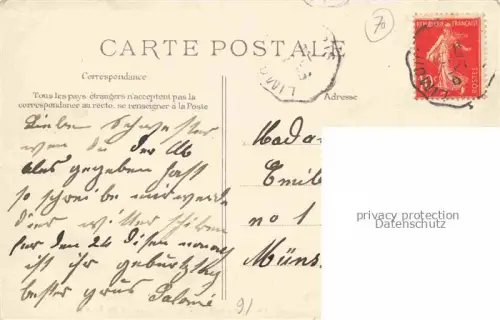 70
CARTE POSTALE
RÉPUBLIQUE FRANÇAISE
POSTES
Correspondance
Tous les pays étrangers n'acceptent pas la
correspondance au recto, se renseigner à la Poste
Adresse
Lieben Schwester
wen du der
ales gegeben hast
so schreibe mir
dier witter
für den 26 disen
ist ihr geburtztag
bester grus Salomé
Mada
Emil
no 1
Müns
privacy protection
Datenschutz
91